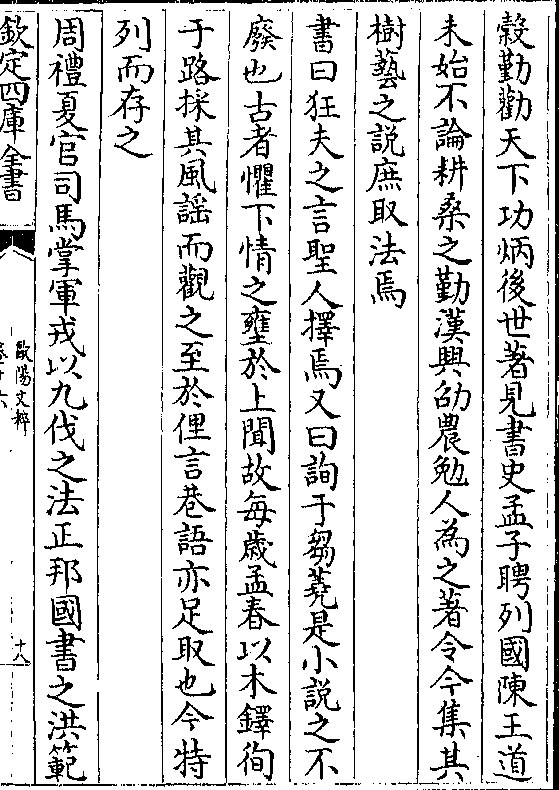 穀勤勸天下功炳後世著見書史孟子聘列國陳王道
未始不論耕桑之勤漢興劭農勉人為之著令今集其
樹藝之說庶取法焉
書曰狂夫之言聖人擇焉又曰詢于芻蕘是小說之不
廢也古者懼下情之壅於上聞故每歲孟春以木鐸徇
于路採其風謡而觀之至於俚言巷語亦足取也今特
列而存之
周禮夏官司馬掌軍戎以九伐之法正邦國書之洪範
欽定四庫全書
歐陽文粹
卷十六
十八